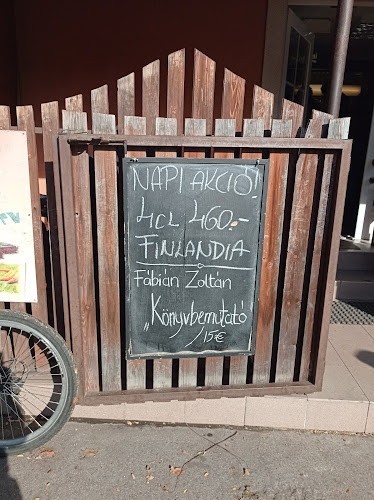 NAPI AKCIÓ!
4CL 460.-
FINLANDIA
FÁBIÁN ZOLTÁN
„Könyvbemutató
15€